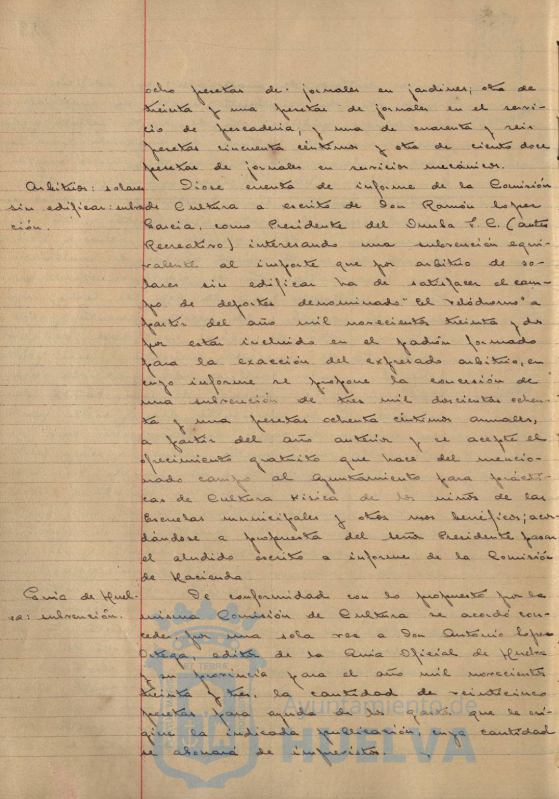 ocho pesetas de jornales en jardines; otra de
treinta y una pesetas de jornales en el servi-
cio de pescaderia; y una de cuarenta y seis
pesetas cincuenta céntimos y otra de ciento doce
pesetas de jornales en servicios mecánicos.
Arbitrios: solares
sin edificar: subven-
ción.
Diose cuenta de informe de la Comisión
de Cultura a escrito de Don Ramón López
García, como Presidente del Onuba F.C. (antes
Recreativo) interesando una subvención equi-
valente al importe que por arbitrio de so-
lares sin edificar ha de satisfacer el cam-
po de deportes denominado "El Velódromo" a
partir del año mil novecientos treinta y dos
por estar incluido en el padrón formado
para la exacción del expresado arbitrio, en
cuyo informe se propone la concesión de
una subvención de tres mil doscientas ochen-
ta y una pesetas ochenta céntimos anuales,
a partir del año anterior y se acepte el
ofrecimiento gratuito que hace del mencio-
nado campo al Ayuntamiento para prácti-
cas de Cultura Física de los niños de las
Escuelas municipales y otros usos benéficos; acor-
dándose a propuesta del señor Presidente pasar
el aludido escrito a informe de la Comisión
de Hacienda
Guia de Huel-
va: subvención.
De conformidad con lo propuesto por la
misma Comisión de Cultura se acordó con-
ceder por una sola vez a Don Antonio López
Ortega, editor de la Guia Oficial de Huelva
y su provincia para el año mil novecientos
treinta y tres, la cantidad de veinticinco
pesetas para ayuda de los gastos que le ori-
gine la indicada publicación, cuya cantidad
se abonará de imprevistos.
Ayuntamiento de
HUELVA